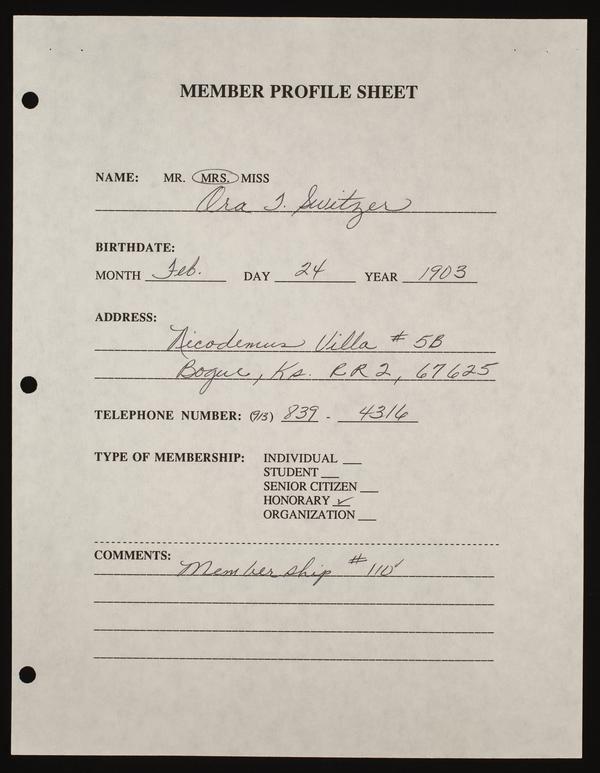 MEMBER PROFILE SHEET
NAME: MR. MRS. MISS
Ora T. Switzer
BIRTHDATE:
MONTH Feb. DAY 24 YEAR 1903
ADDRESS:
Nicodemus Villa # 5B
Bogue, Ks. RR2, 67625
TELEPHONE NUMBER: (913) 839 - 4316
TYPE OF MEMBERSHIP: INDIVIDUAL ___
STUDENT ___
SENIOR CITIZEN ___
HONORARY ✓
ORGANIZATION ___
COMMENTS:
Membership # 110